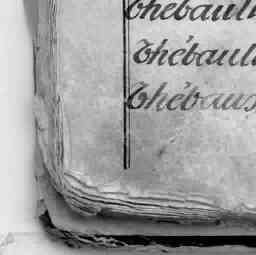 Thébault
Thébault
Thébaus